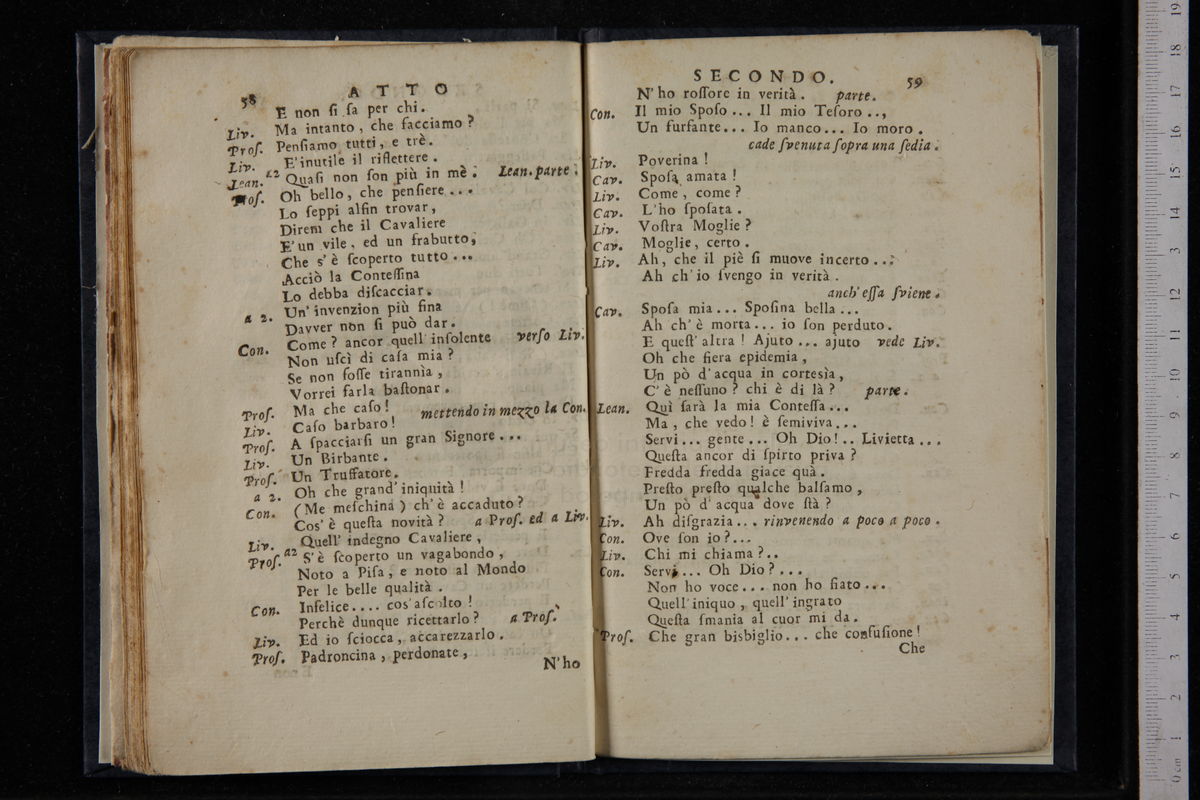 58
ATTO
E non ſi ſa per chi.
Liv. Ma intanto, che facciamo?
Prof. Penſiamo tutti, e trè.
Liv. E'inutile il riflettere.
Lean. a2 Quaſi non ſon più in mè. Lean. parte.
Prof. Oh bello, che penſiere...
Lo ſeppi alfin trovar,
Direm che il Cavaliere
E' un vile, ed un frabutto,
Che s'è ſcoperto tutto...
Acciò la Conteſſina
Lo debba diſcacciar.
a 2. Un' invenzion più fina
Davver non ſi può dar.
Con. Come? ancor quell' inſolente verſo Liv.
Non uſcì di caſa mia?
Se non foſſe tirannìa,
Vorrei farla baſtonar.
Prof. Ma che caſo! mettendo in mezzo la Con.
Liv. Caſo barbaro!
Prof. A ſpacciarſi un gran Signore...
Liv. Un Birbante.
Prof. Un Truffatore.
a 2. Oh che grand' iniquità!
Con. (Me meſchina) ch'è accaduto?
Cos' è queſta novità? a Prof. ed a Liv.
Liv. Quell' indegno Cavaliere,
Prof. a2 S'è ſcoperto un vagabondo,
Noto a Piſa, e noto al Mondo
Per le belle qualità.
Con. Infelice.... cos' aſcolto!
Perchè dunque ricettarlo? a Prof.
Liv. Ed io ſciocca, accarezzarlo.
Prof. Padroncina, perdonate,
N'ho
SECONDO.
59
N'ho roſſore in verità. parte.
Con. Il mio Spoſo... Il mio Teſoro..,
Un furfante... Io manco... Io moro.
cade ſvenuta ſopra una ſedia.
Liv. Poverina!
Cav. Spoſa amata!
Liv. Come, come?
Cav. L'ho ſpoſata.
Liv. Voſtra Moglie?
Cav. Moglie, certo.
Liv. Ah, che il piè ſi muove incerto...
Ah ch'io ſvengo in verità.
anch' eſſa ſviene.
Cav. Spoſa mia... Spoſina bella...
Ah ch' è morta... io ſon perduto.
E queſt' altra! Ajuto... ajuto vede Liv.
Oh che fiera epidemia,
Un pò d'acqua in cortesìa,
C' è neſſuno? chi è di là? parte.
Lean. Quì ſarà la mia Conteſſa...
Ma, che vedo! è ſemiviva...
Servi... gente... Oh Dio!.. Livietta...
Queſta ancor di ſpirto priva?
Fredda fredda giace quà.
Preſto preſto qualche balſamo,
Un pò d'acqua dove ſtà?
Liv. Ah diſgrazia... rinvenendo a poco a poco.
Con. Ove ſon io?...
Liv. Chi mi chiama?..
Con. Servi... Oh Dio?...
Non ho voce... non ho fiato...
Quell' iniquo, quell' ingrato
Queſta ſmania al cuor mi da.
Prof. Che gran bisbiglio... che confuſione!
Che